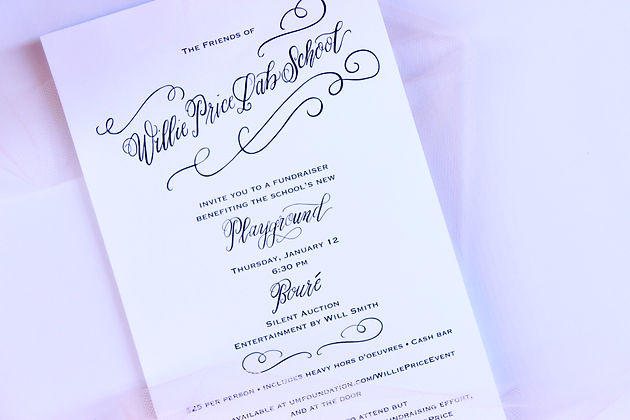 The Friends of
Willie Price Lab School
invite you to a fundraiser
benefiting the school's new
Playground
Thursday, January 12
6:30 pm
Bouré
Silent Auction
Entertainment by Will Smith
$25 per person • includes heavy hors d'oeuvres • Cash bar
available at umfoundation.com/WilliePriceEvent
and at the door
to attend but
fundraising effort,
Price